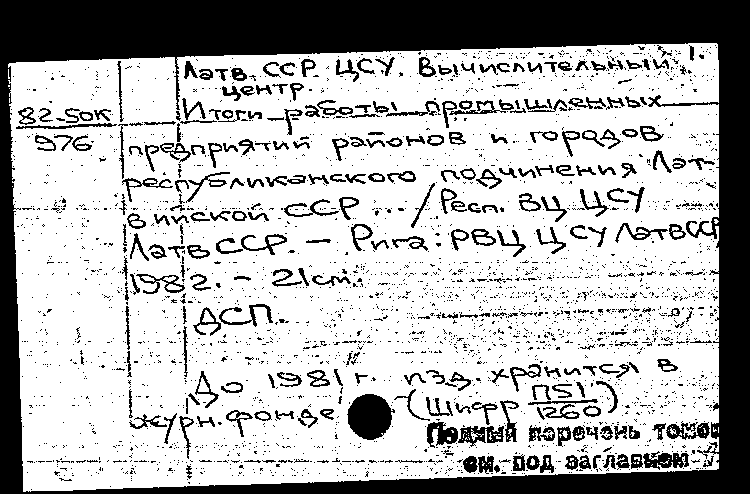 1.
Латв. ССР. ЦСУ. Вычислительный
центр.
82-5ок
976
Итоги работы промышленных
предприятий районов и городов
республиканского подчинения Лат-
вийской ССР ... / Респ. ВЦ ЦСУ
Латв ССР. – Рига: РВЦ ЦСУ Латв ССР,
1982. – 21 см.
ДСП.
До 1981 г. изд. хранится в
журн. фонде (Шифр П51/1260).
Полный перечень томов
см. под заглавием